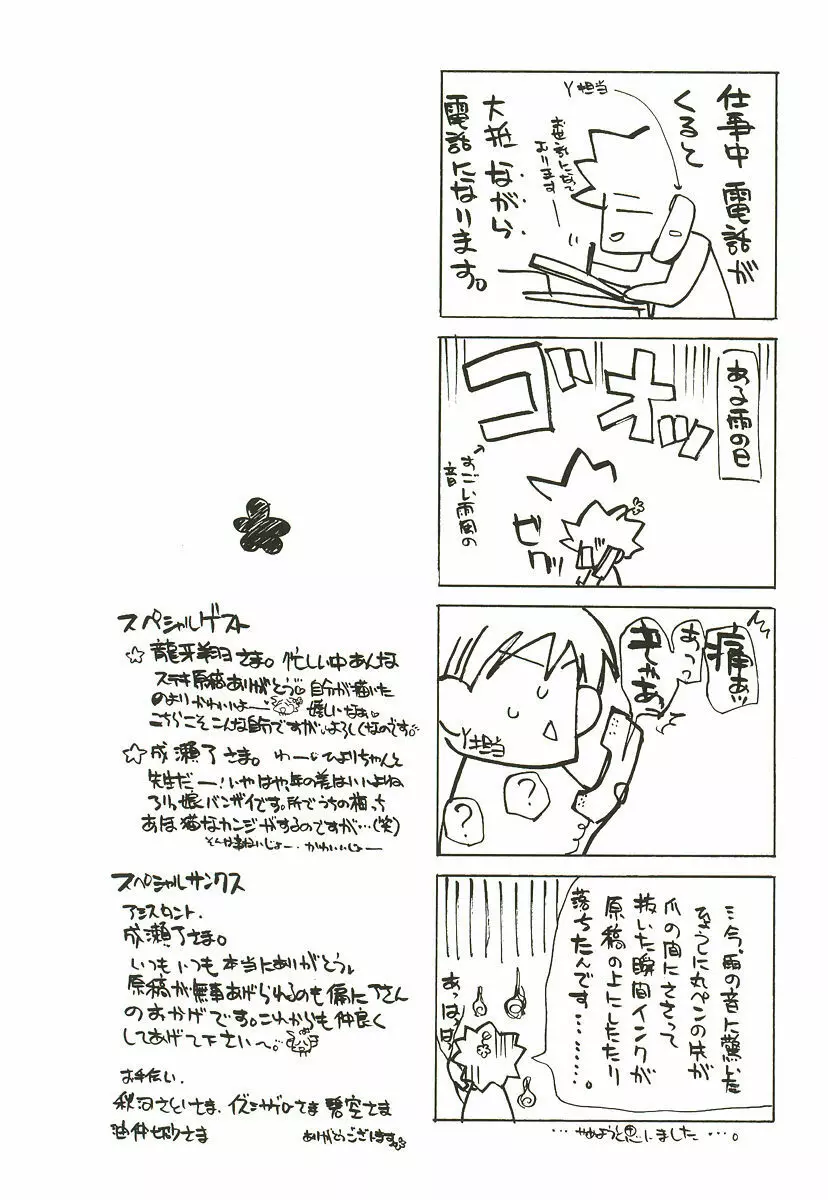 仕事中 電話が
くると
Y担当
お世話になって
おります
大抵 ながら
電話になります。
ある雨の日
ゴオッ
すごい雨風の
音
ビクッ
痛あッ
あっっ
きゃあっ
Y担当
?
?
…今、雨の音に驚いた
ひょうしに丸ペンの先が
爪の間にささって
抜いた瞬間インクが
原稿の上にしたたり
落ちたんです………。
あっはっはっ
…やめようと思いました…。
スペシャルゲスト
☆龍牙翔さま。忙しい中あんな
ステキ原稿ありがとう 自分が描いた
のよりかわいいよー 嬉しいなぁ
こちらこそこんな自分ですが、よろしくなのです。
☆成瀬了さま。わー ひよりちゃんと
先生だー!いやはや、年の差はいいよね
ろりっ娘バンザイです。所でうちの
あほ猫なカンジがするのですが…(笑)
スペシャルサンクス
アシスタント.
成瀬了さま。
いつもいつも本当にありがとう
原稿が無事あげられるのも偏に了さん
のおかげです。これからも仲良く
してあげて下さい〜。
お手伝い.
秋河さといさま イズミサゲロさま 碧空さま
さま
ありがとうございます